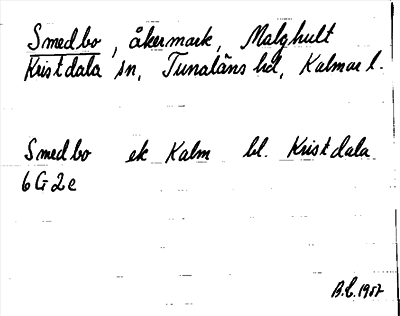 Smedbo, åkermark, Malghult
Kristdala sn, Tunaläns hd, Kalmar l.
Smedbo ek Kalm bl. Kristdala
6G2e
B.C. 1957